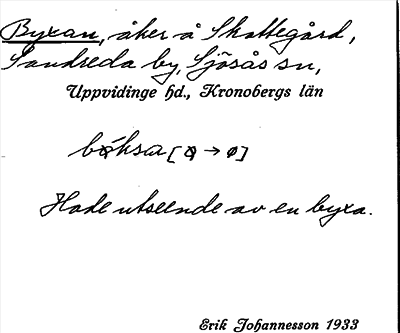 Byxan, åker å Skattegård,
Sandreda by, Sjösås sn,
Uppvidinge hd., Kronobergs län
Hade utseende av en byxa.
Erik Johannesson 1933